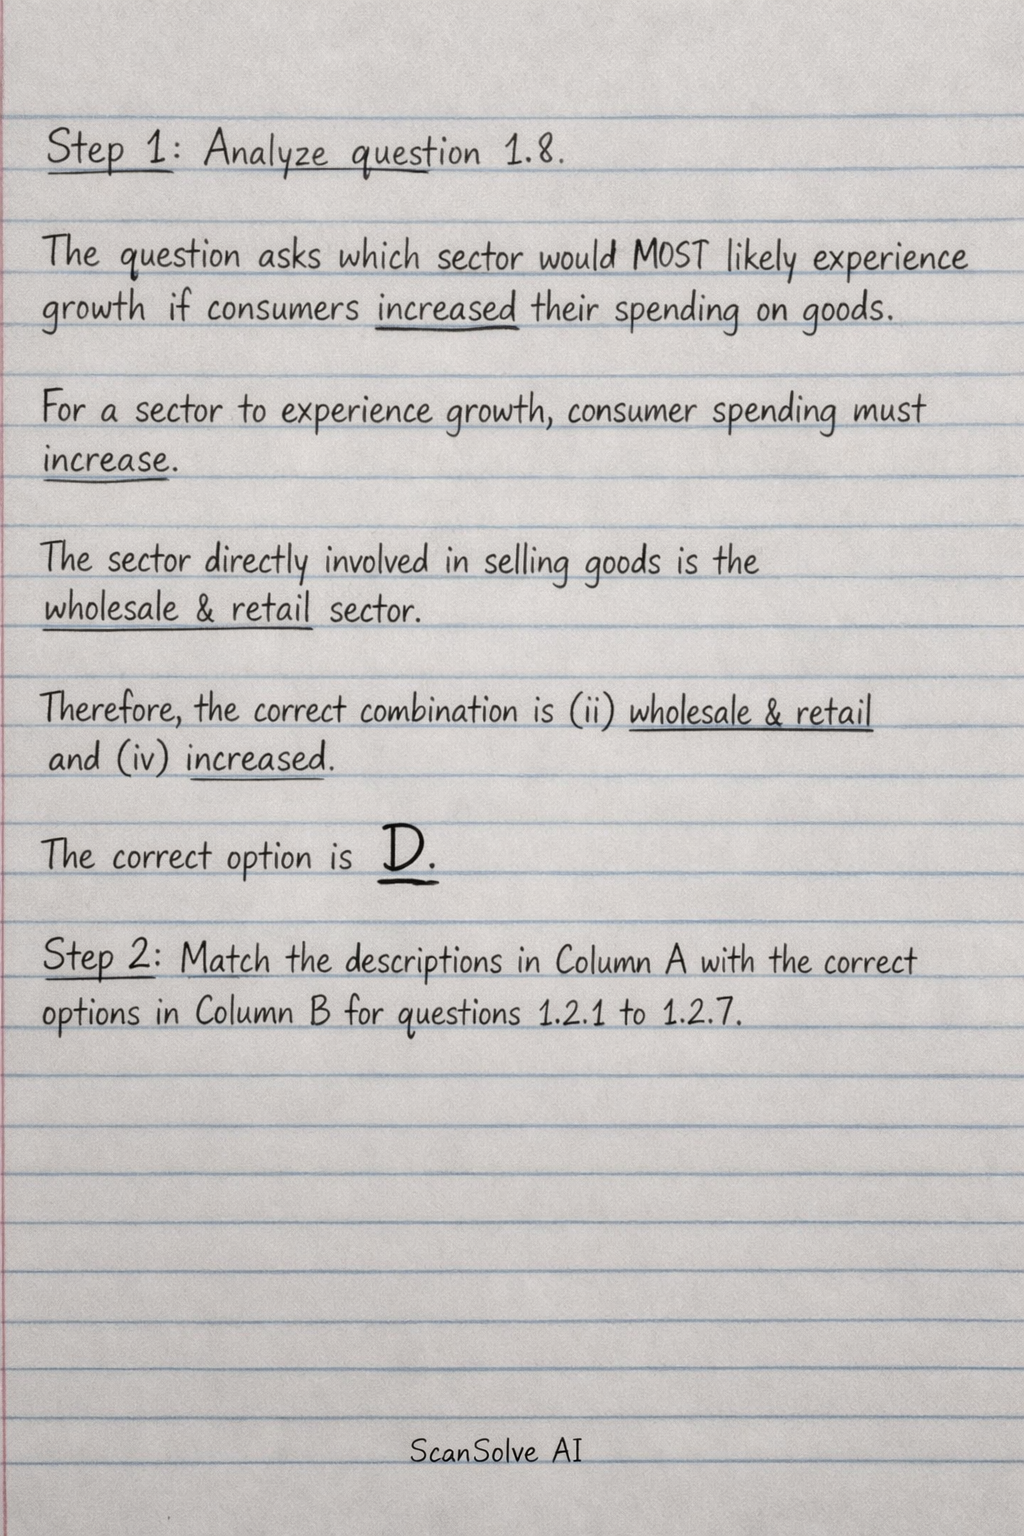 Step 1: Analyze question 1.8.
The question asks which sector would MOST likely experience
growth if consumers increased their spending on goods.
For a sector to experience growth, consumer spending must
increase.
The sector directly involved in selling goods is the
wholesale & retail sector.
Therefore, the correct combination is (ii) wholesale & retail
and (iv) increased.
The correct option is D.
Step 2: Match the descriptions in Column A with the correct
options in Column B for questions 1.2.1 to 1.2.7.
ScanSolve AI